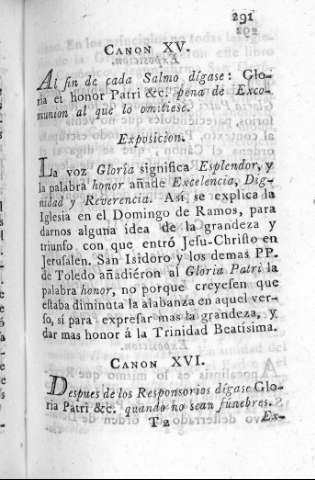 291
CANON XV.
Al fin de cada Salmo dígase: Glo-
ria et honor Patri &c. pena de Exco-
munion al que lo omitiese.
Exposicion.
La voz Gloria significa Esplendor, y
la palabra honor añade Excelencia, Dig-
nidad y Reverencia. Así se explica la
Iglesia en el Domingo de Ramos, para
darnos alguna idea de la grandeza y
triunfo con que entró Jesu-Christo en
Jerusalen. San Isidoro y los demas PP.
de Toledo añadiéron al Gloria Patri la
palabra honor, no porque creyesen que
estaba diminuta la alabanza en aquel ver-
so, sí para expresar mas la grandeza, y
dar mas honor á la Trinidad Beatísima.
CANON XVI.
Despues de los Responsorios dígase Glo-
ria Patri &c. quando no sean fúnebres.
T 2 Ex-